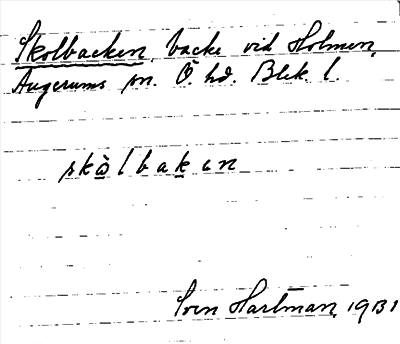 Skolbacken, backe vid Holmen,
Augerums sn. Ö. hd. Blek. l.
skòlbakɘn
Sven Hartman, 1931